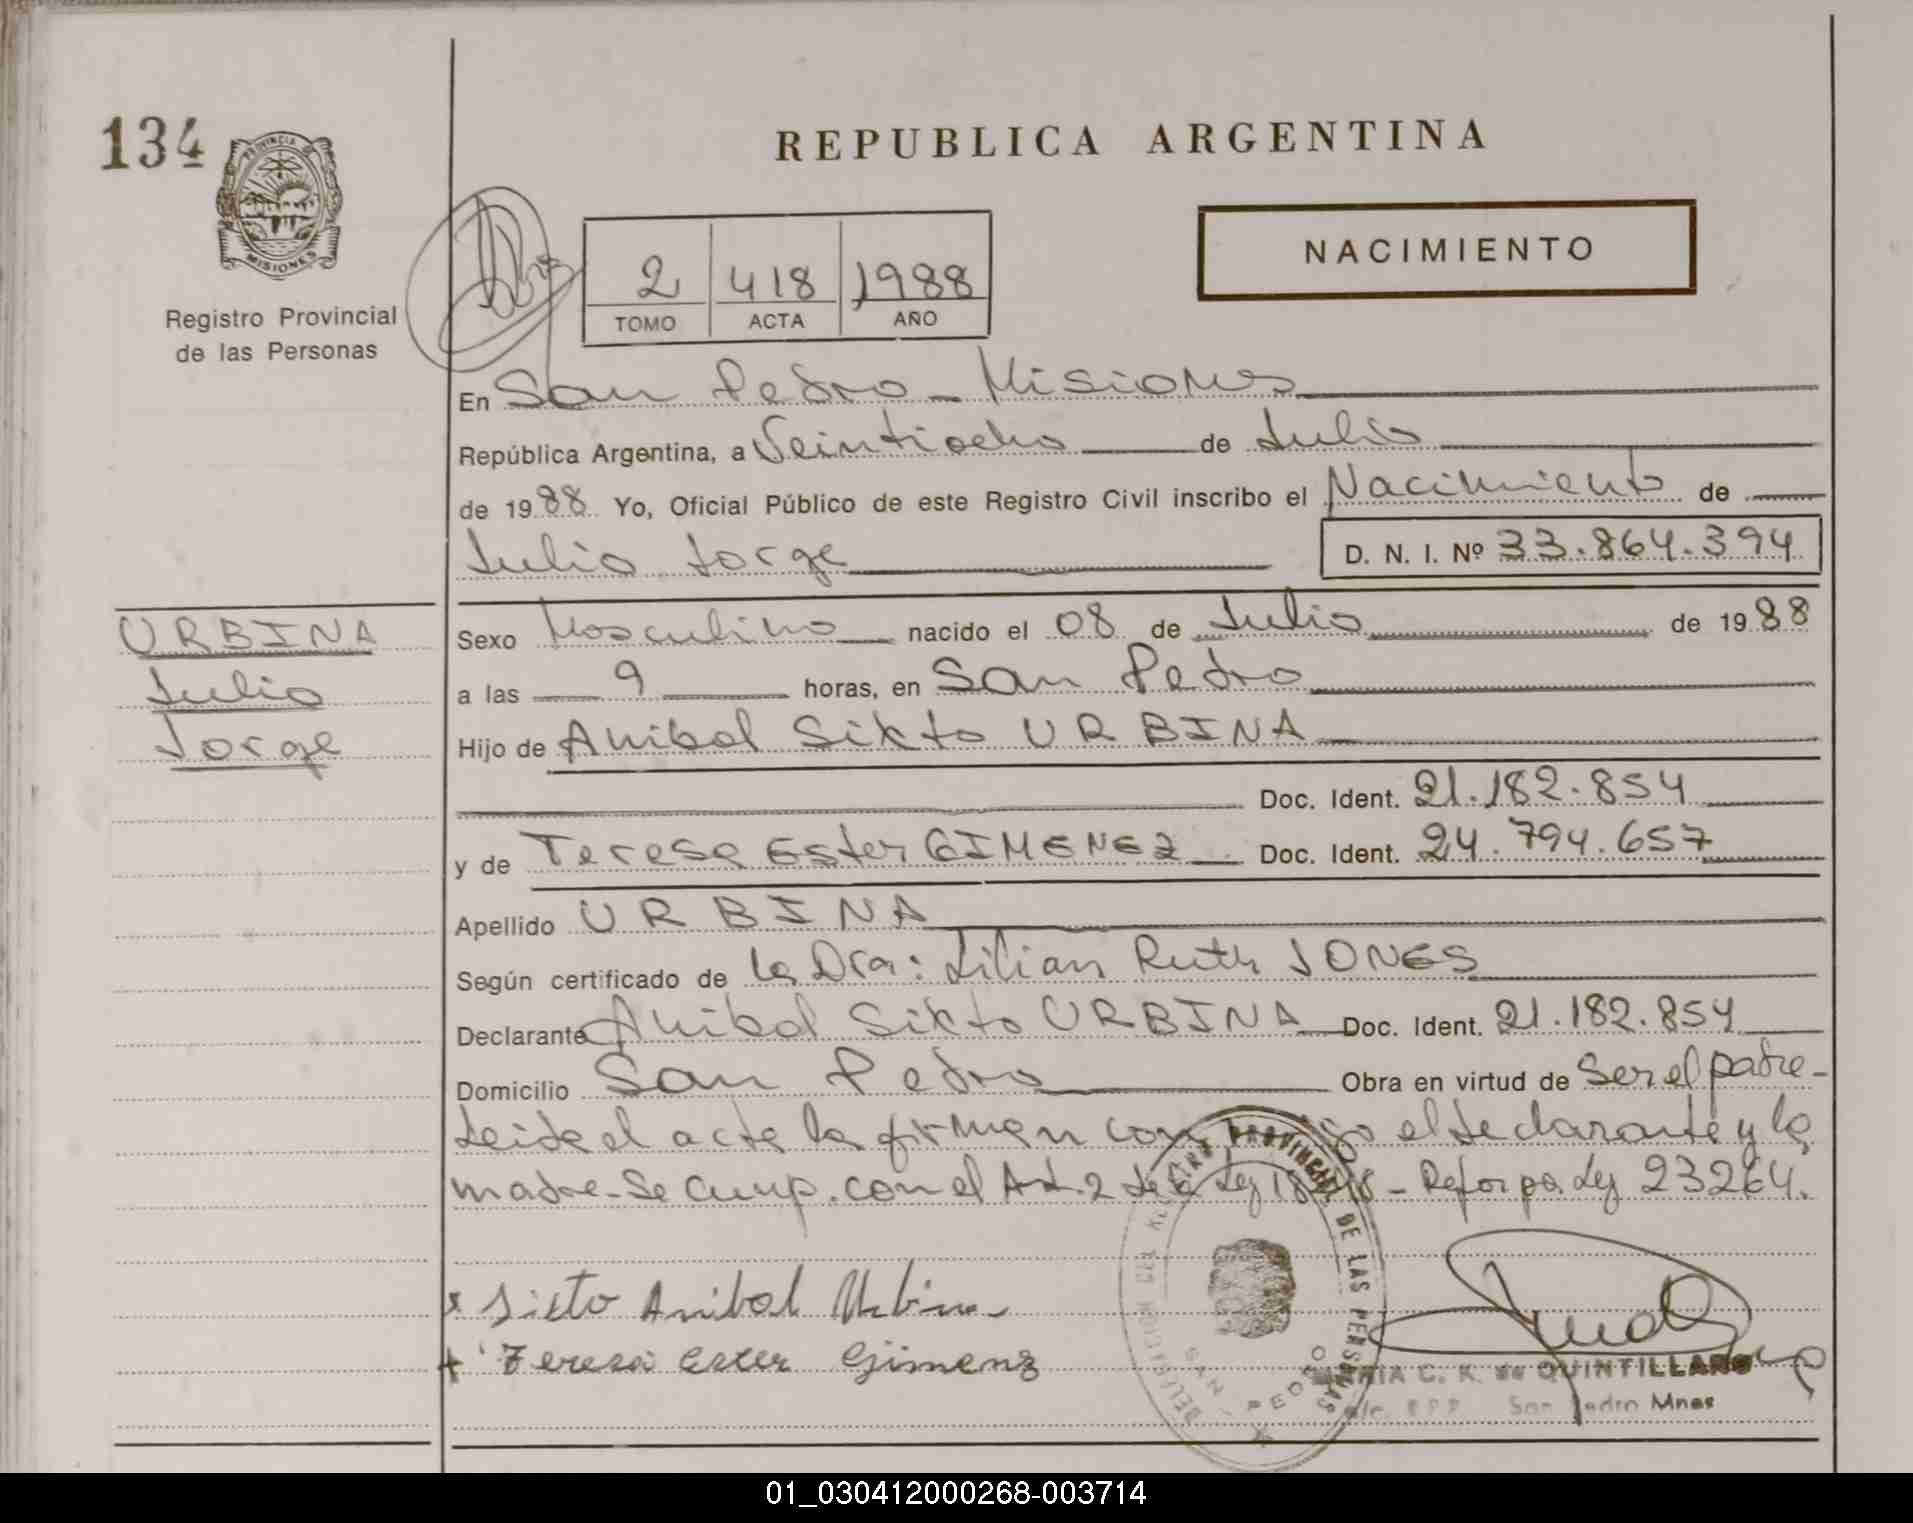 134
PROVINCIA DE
MISIONES
Registro Provincial
de las Personas
REPUBLICA ARGENTINA
NACIMIENTO
2 418 1988
TOMO ACTA AÑO
En San Pedro - Misiones
República Argentina, a Veintiocho de Julio
de 1988 Yo, Oficial Público de este Registro Civil inscribo el Nacimiento de
Julio Jorge D. N. I. Nº 33.864.394
URBINA
Julio
Jorge
Sexo Masculino nacido el 08 de Julio de 1988
a las 9 horas, en San Pedro
Hijo de Anibal Sixto URBINA
Doc. Ident. 21.182.854
y de Teresa Ester GIMENEZ Doc. Ident. 24.794.657
Apellido URBINA
Según certificado de la Dra: Lilian Ruth JONES
Declarante Anibal Sixto URBINA Doc. Ident. 21.182.854
Domicilio San Pedro Obra en virtud de Ser el padre-
Leida el acta la firman con el declarante y la
madre-Se Cump. con el Art. 2 de la Ley - Refor por Ley 23264.
x Sixto Anibal Urbina
+ Teresa Ester Gimenz
DELEGACION DEL REGISTRO PROVINCIAL DE LAS PERSONAS
SAN PEDRO
MARIA C. K. de QUINTILLAN
San Pedro Mnes
01_030412000268-003714